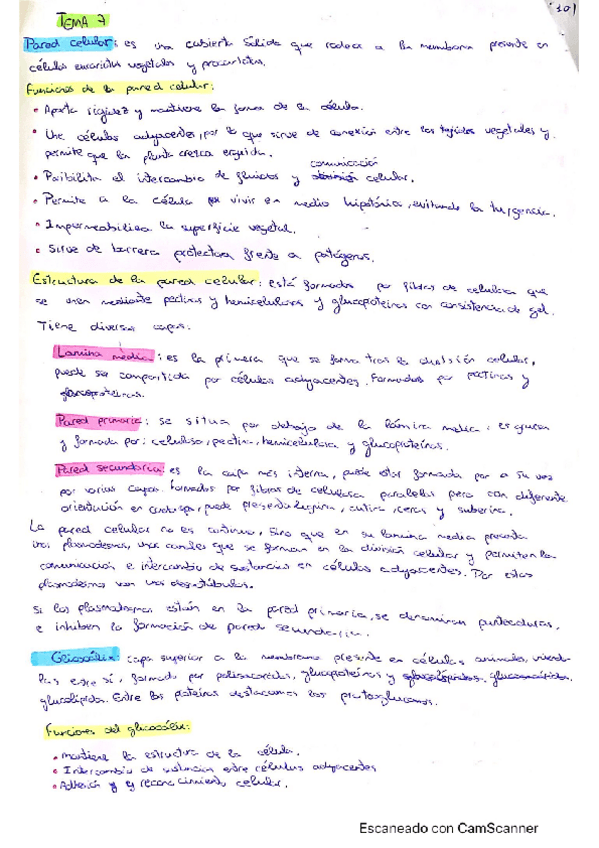 10)
TEMA 7
Pared celular: es una cubierta sólida que rodea a la membrana presente en
células eucariotas vegetales y procariotas.
Funciones de la pared celular:
• Aporta rigidez y mantiene la forma de la célula.
• Une células adyacentes, por lo que sirve de conexión entre los tejidos vegetales y
permite que la planta crezca erguida.
• Posibilita el intercambio de fluidos y comunicación celular.
• Permite a la célula vivir en medio hipotónico, evitando la turgencia.
• Impermeabiliza la superficie vegetal.
• Sirve de barrera protectora frente a patógenos.
Estructura de la pared celular: está formada por fibras de celulosa que
se unen mediante pectinas y hemicelulosas y glucoproteínas con consistencia de gel.
Tiene diversas capas:
Lámina media: es la primera que se forma tras la división celular,
puede ser compartida por células adyacentes. Formadas por pectinas y
glucoproteínas.
Pared primaria: se situa por debajo de la lámina media: es gruesa
y formada por: celulosa, pectina, hemicelulosa y glucoproteínas.
Pared secundaria: es la capa más interna, puede estar formada por a su vez
por varias capas. Formadas por fibras de celulosa paralelas pero con diferente
orientación en cada capa, puede presentar lignina, cutina, ceras y suberina.
La pared celular no es continua, sino que en su lámina media presenta
los plasmodesmos, unos canales que se forman en la división celular y permiten la
comunicación e intercambio de sustancias en células adyacentes. Por estos
plasmodesmos van los desmotúbulos.
Si los plasmodesmos están en la pared primaria, se denominan punteaduras,
e inhiben la formación de pared secundaria.
Glicocálix: capa superior a la membrana presente en células animales,
las entre sí, formado por polisacáridos, glucoproteínas y
glucolípidos. Entre las proteínas destacamos los proteoglucanos.
Funciones del glicocálix:
• Mantiene la estructura de la célula.
• Intercambio de sustancias entre células adyacentes
• Adhesión y reconocimiento celular.
Escaneado con CamScanner